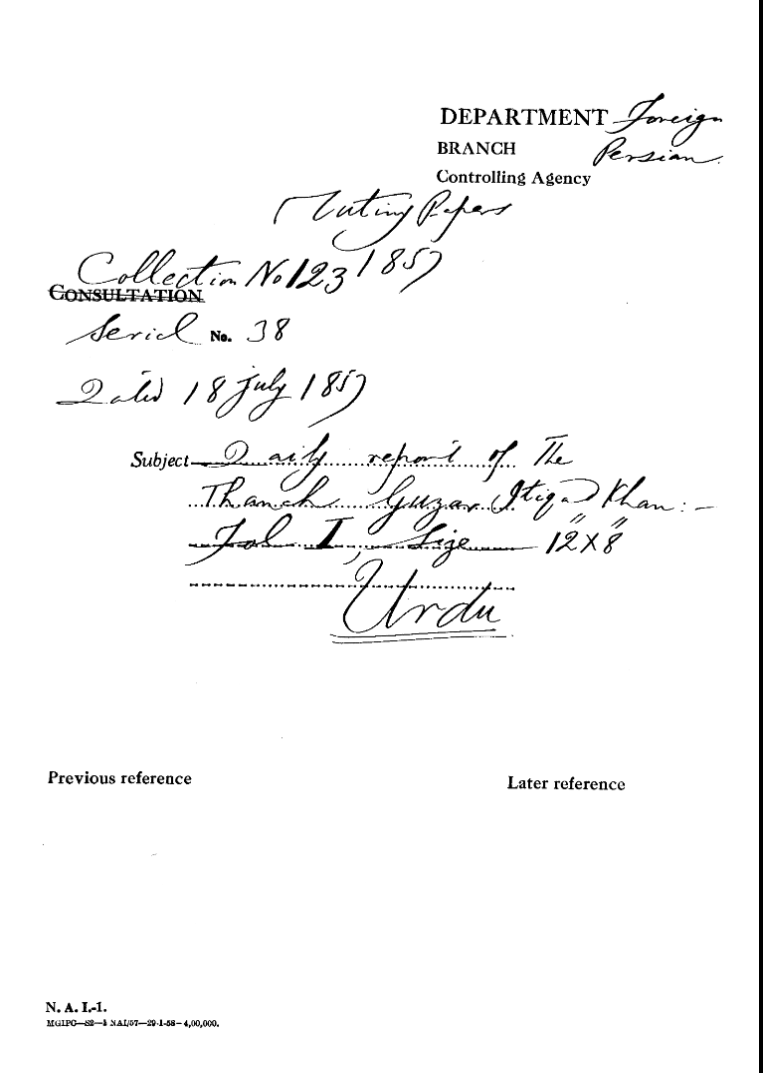 DEPARTMENT Foreign
BRANCH Persian
Controlling Agency
Mutiny Papers
Collection No 123 1857
CONSULTATION
Serial No. 38
Dated 18 July 1857
Subject Daily report of The
Thanah Guzar Itiqad Khan:-
Fol I, Size 12"X8"
Urdu
Previous reference
Later reference
N. A. I.-1.
MGIPC—S2—5 NAI/57—29-1-58—4,00,000.